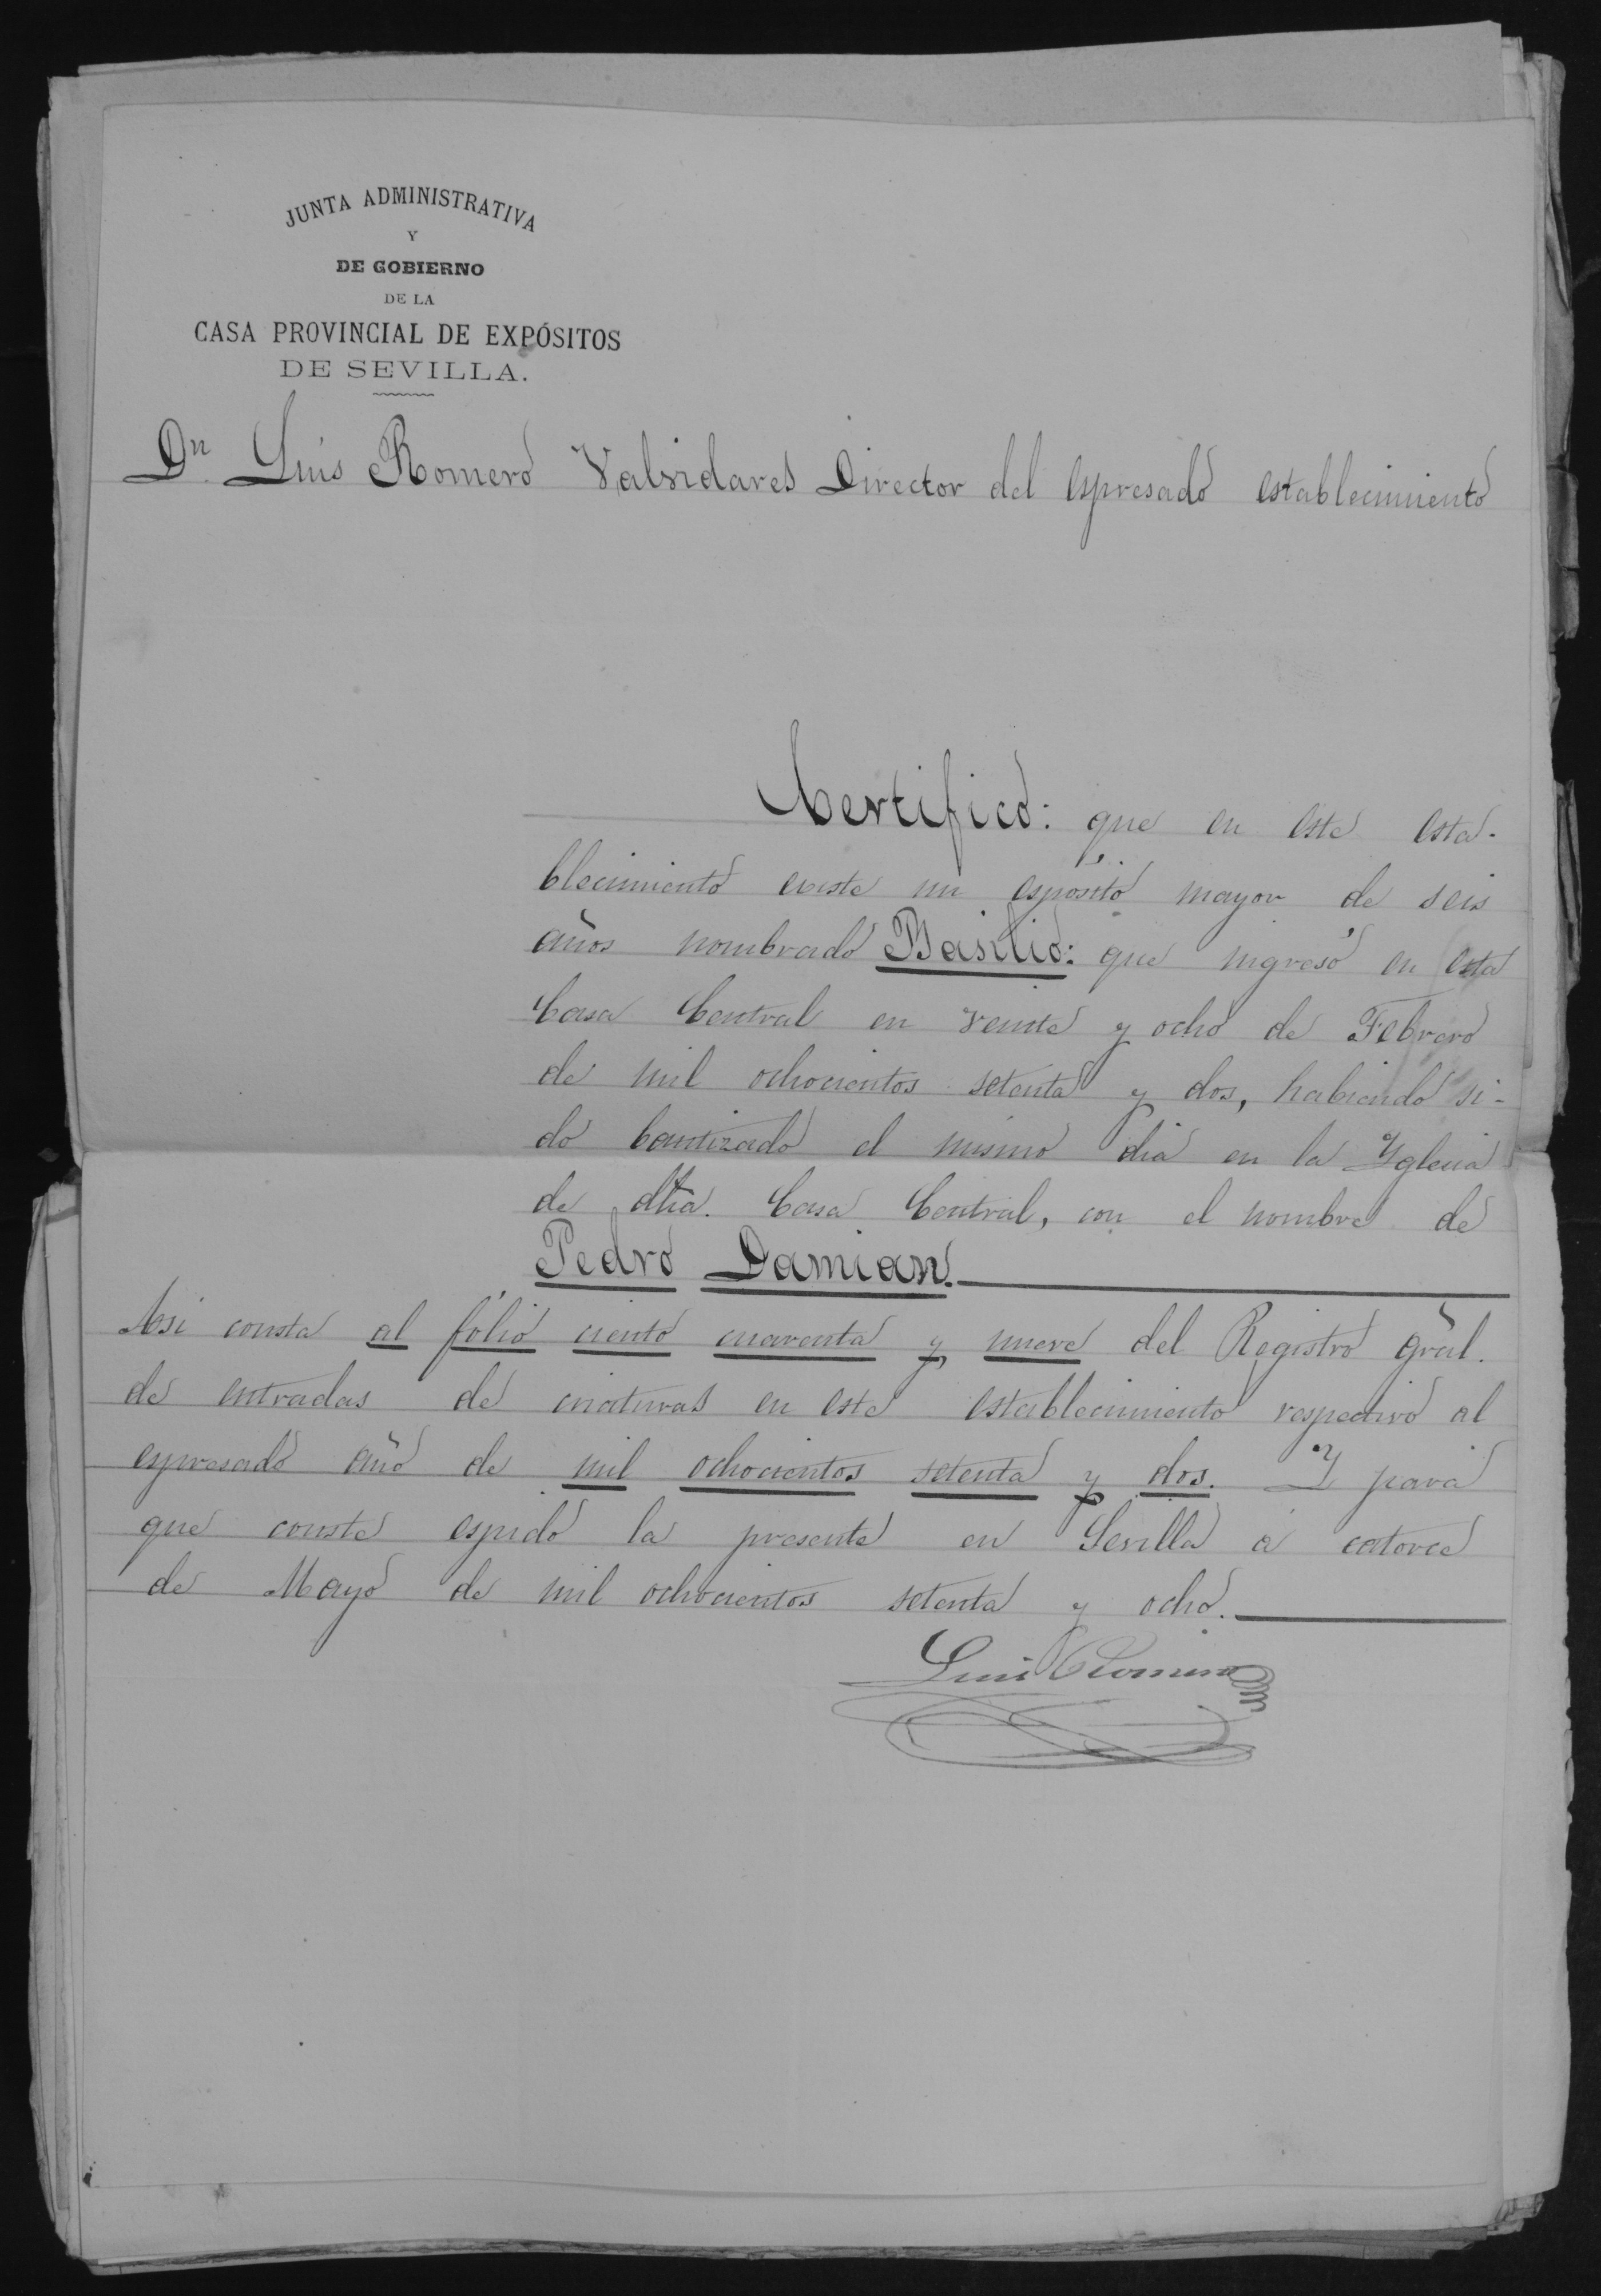 JUNTA ADMINISTRATIVA
Y
DE GOBIERNO
DE LA
CASA PROVINCIAL DE EXPÓSITOS
DE SEVILLA.
Dn. Luis Romero Valvidares Director del espresado establecimiento
Certifico: que en este esta-
blecimiento existe un espósito mayor de seis
años nombrado Basilio: que ingresó en esta
Casa Central en veinte y ocho de Febrero
de mil ochocientos setenta y dos, habiendo si-
do bautizado el mismo dia en la Yglesia
de dha. Casa Central, con el nombre de
Pedro Damian.
Asi consta al fólio ciento cuarenta y nueve del Registro gral.
de entradas de criaturas en este establecimiento respectivo al
espresado año de mil ochocientos setenta y dos. Y para
que conste espido la presente en Sevilla á catorce
de Mayo de mil ochocientos setenta y ocho.
Luis Romero